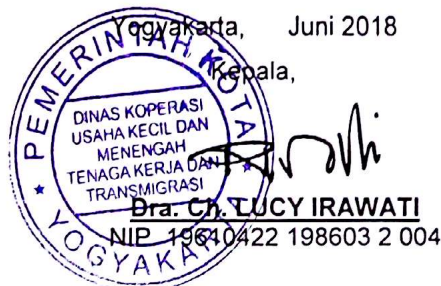 Yogyakarta, Juni 2018
Kepala,
PEMERINTAH KOTA
DINAS KOPERASI
USAHA KECIL DAN
MENENGAH
TENAGA KERJA DAN
TRANSMIGRASI
YOGYAKARTA
Dra. Ch. LUCY IRAWATI
NIP. 19610422 198603 2 004